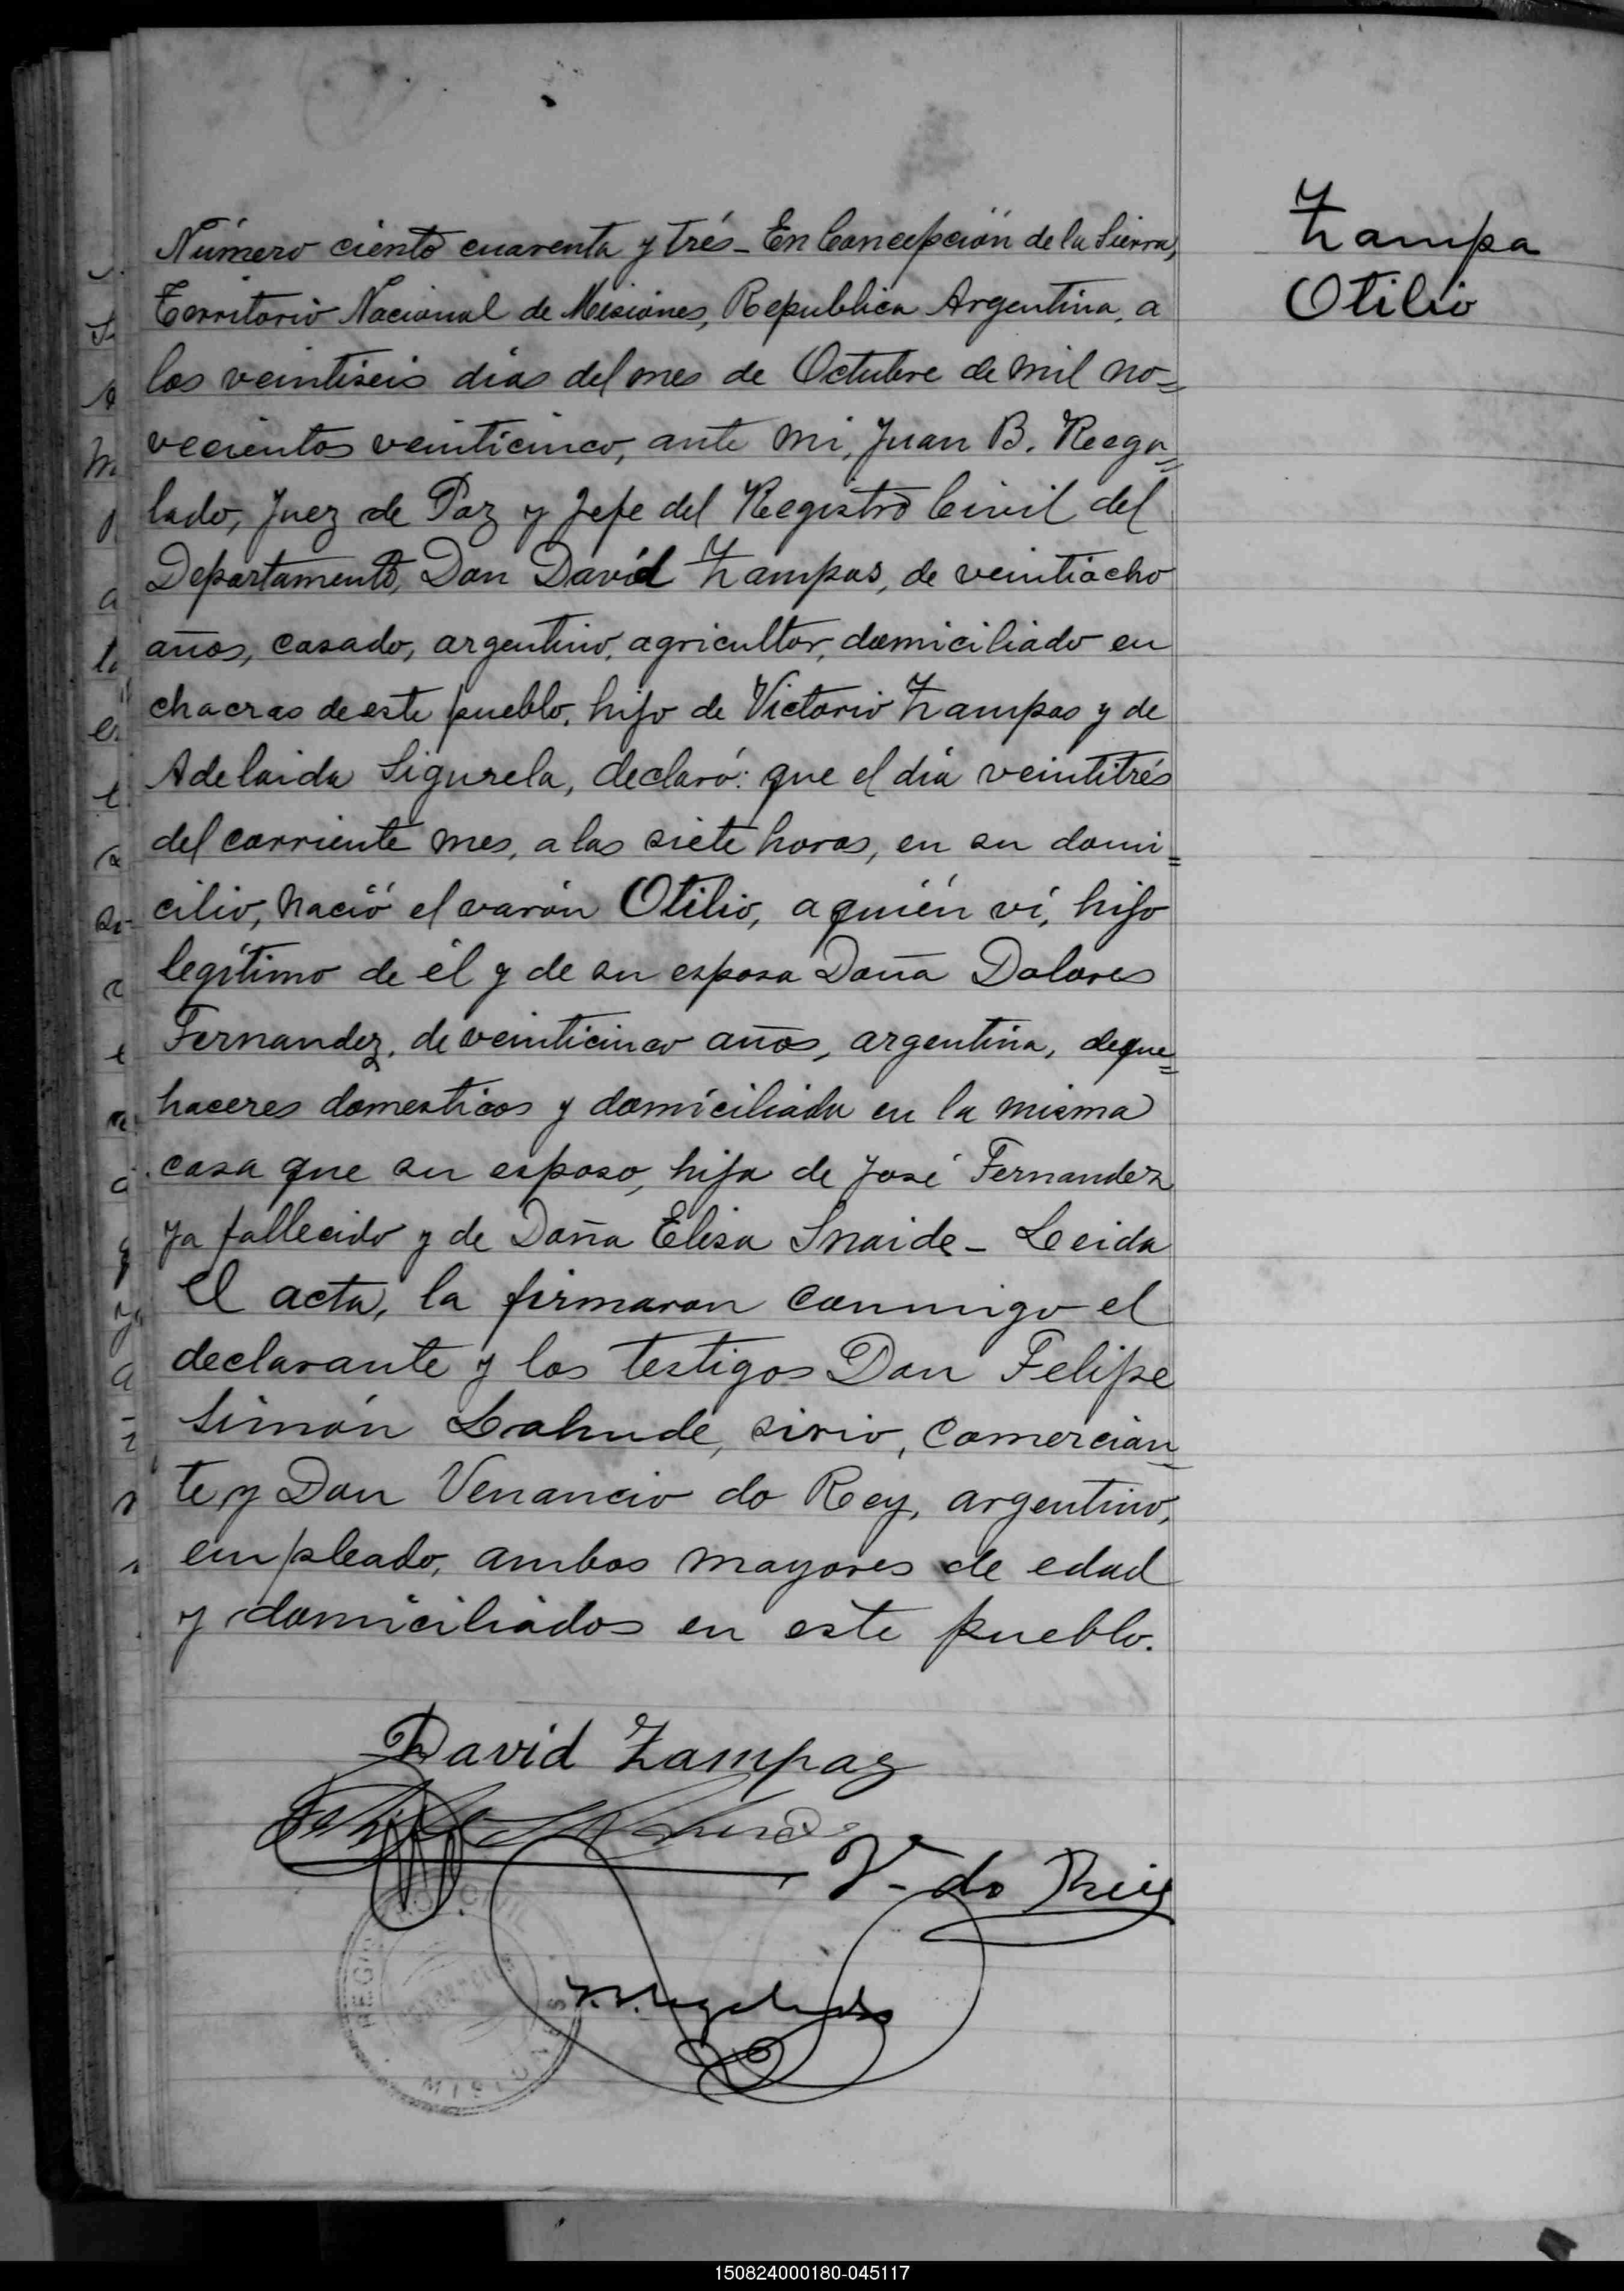 Zampa
Otilio
Número ciento cuarenta y trés - En Concepción de la Sierra,
Territorio Nacional de Misiones, Republica Argentina, a
los veintiseis días del mes de Octubre de mil no=
vecientos veinticinco, ante mi, Juan B. Rega=
lado, Juez de Paz y Jefe del Registro Civil del
Departamento, Don David Zampas, de veintiocho
años, casado, argentino, agricultor, domiciliado en
chacras de este pueblo, hijo de Victorio Zampas y de
Adelaida Sigurela, declaró: que el día veintitrés
del corriente mes, a las siete horas, en su domi=
cilio, nació el varón Otilio, a quién ví, hijo
legítimo de él y de su esposa Doña Dolores
Fernandez, de veinticinco años, argentina, de que=
haceres domesticos y domiciliada en la misma
casa que su esposo, hija de José Fernandez
ya fallecido y de Doña Elisa Snaide - Leida
el acta, la firmaron conmigo el
declarante y los testigos Don Felipe
Simón Lahude, sirio, comercian=
te y Don Venancio do Rey, argentino,
empleado, ambos mayores de edad
y domiciliados en este pueblo.
David Zampas
V. do Rey
REGISTRO CIVIL
MISIONES
150824000180-045117